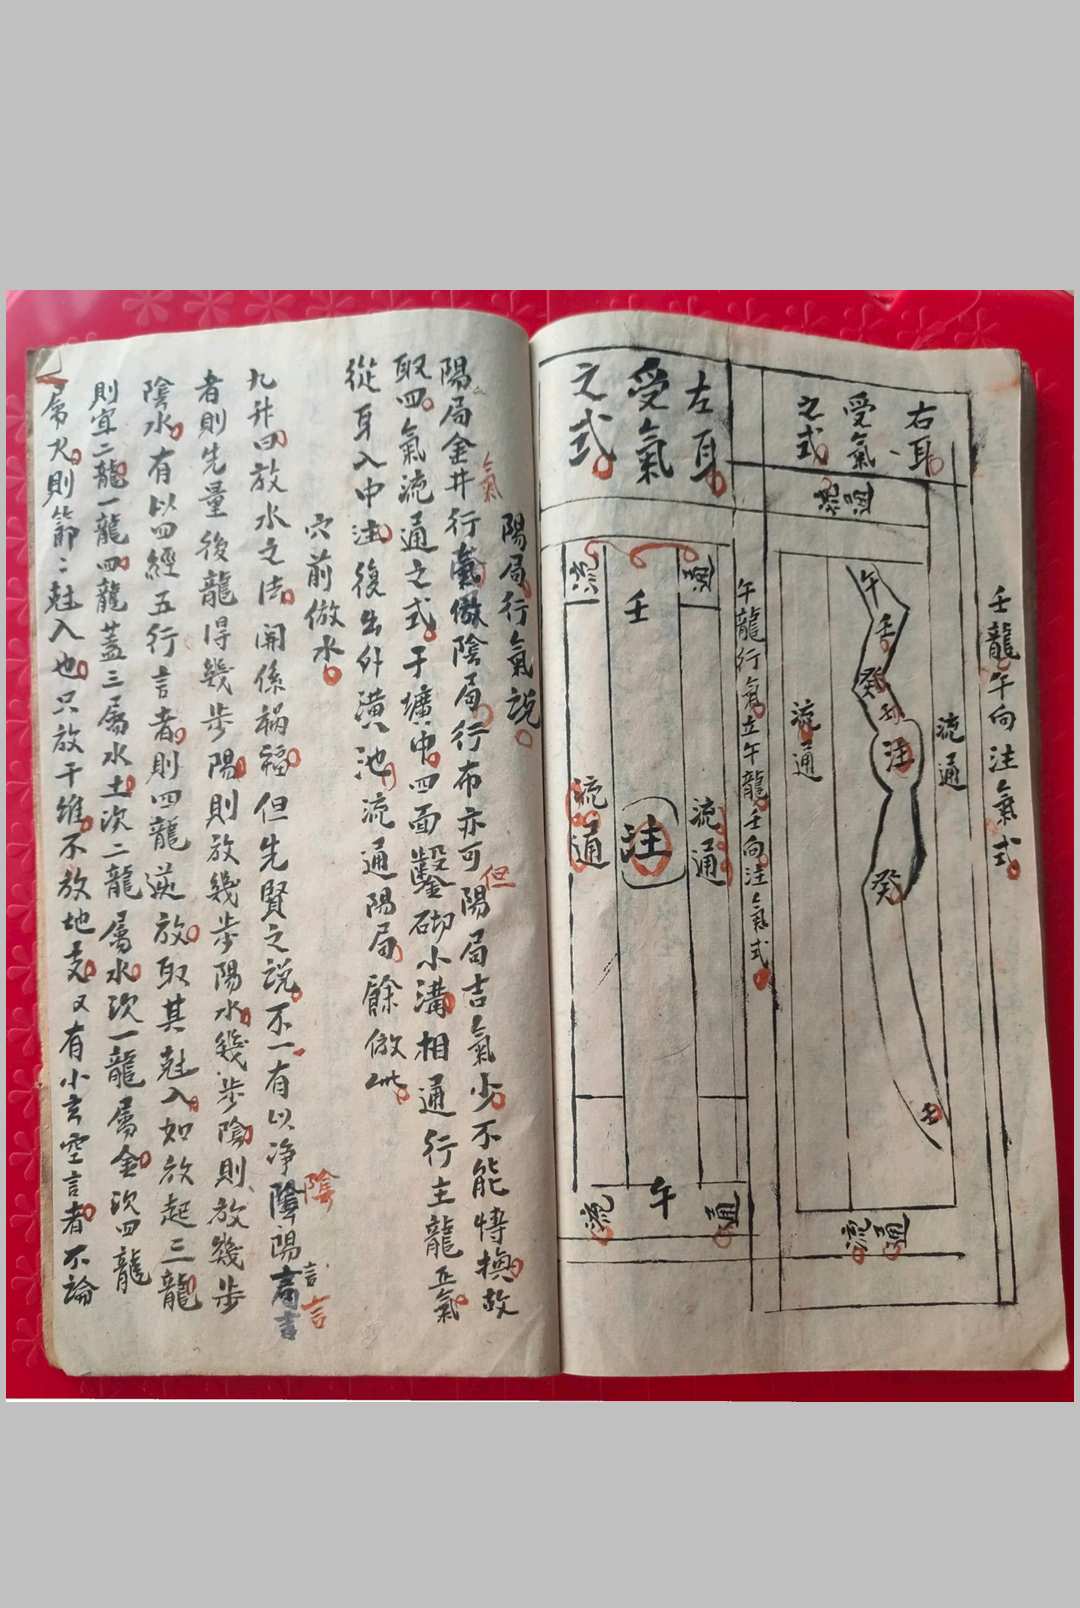 壬龍午向注氣式
右耳
受氣
之式
流通
午
壬
癸
注
癸
流通
流通
午龍行氣立午龍壬向注氣式
左耳
受氣
之式
壬
流通
注
流通
午
流
通
陽局行氣説
氣
陽局金井行氣倣陰局行布亦可但陽局吉氣少不能轉換故
取四氣流通之式于壙中四面鑿砌小溝相通行主龍正氣
從耳入中注復出外潢池流通陽局餘倣此
穴前倣水
九升曰放水之法開係禍福但先賢之説不一有以净陰陽言
陰
言
者則先量後龍得幾步陽則放幾步陽水幾步陰則放幾步
陰水有以四經五行言者則四龍逆放取其尅入如放起三龍
則宜二龍一龍四龍蓋三屬水土次二龍屬水次一龍屬金次四龍
屬火則節二尅入也只放干維不放地支又有小玄空言者不論